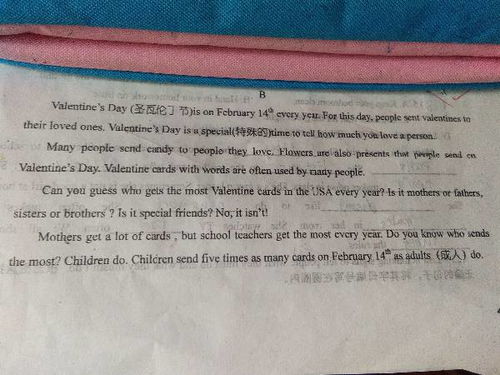 B
Valentine's Day (圣瓦伦丁节)is on February 14th every year. For this day, people sent valentines to
their loved ones. Valentine's Day is a special(特殊的)time to tell how much you love a person.
Many people send candy to people they love. Flowers are also presents that people send on
Valentine's Day. Valentine cards with words are often used by many people.
Can you guess who gets the most Valentine cards in the USA every year? Is it mothers or fathers,
sisters or brothers ? Is it special friends? No, it isn't!
Mothers get a lot of cards , but school teachers get the most every year. Do you know who sends
the most? Children do. Children send five times as many cards on February 14th as adults (成人) do.